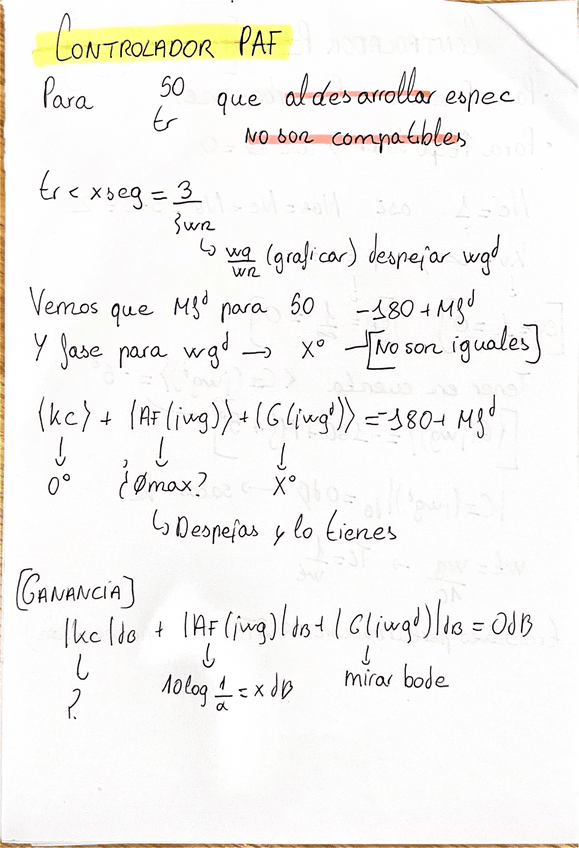 CONTROLADOR PAF
Para SO que al desarrollar espec
tr NO SON compatibles
tr < x seg = 3/ξwn
↳ wg/wn (graficar) despejar wg^d
Vemos que Mf^d para SO -180 + Mf^d
Y fase para wg^d → X° - [No son iguales]
⟨kc⟩ + ⟨AF(jwg)⟩ + ⟨G(jwg^d)⟩ = -180 + Mf^d
↓ ↓ ↓
0° ¿Ømax? X°
↳ Despejas y lo tienes
[GANANCIA]
|kc|dB + |AF(jwg)|dB + |G(jwg^d)|dB = 0dB
↓ ↓ ↓
? 10log 1/α = x dB mirar bode